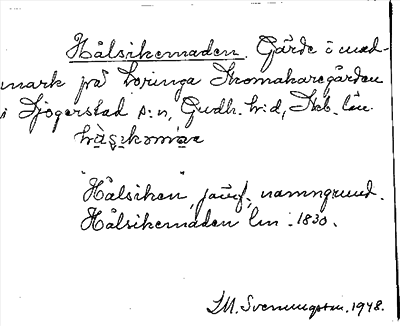 Hålsikemaden. Gärde i mad-
mark på Loringa Skomakaregården
i Sjogerstad s:n, Gudh. h:d, Skb. län.
"Hålsiken", jämf. namngrund.
Hålsikemaden lm. 1830.
S.M. Svenungsson. 1948.